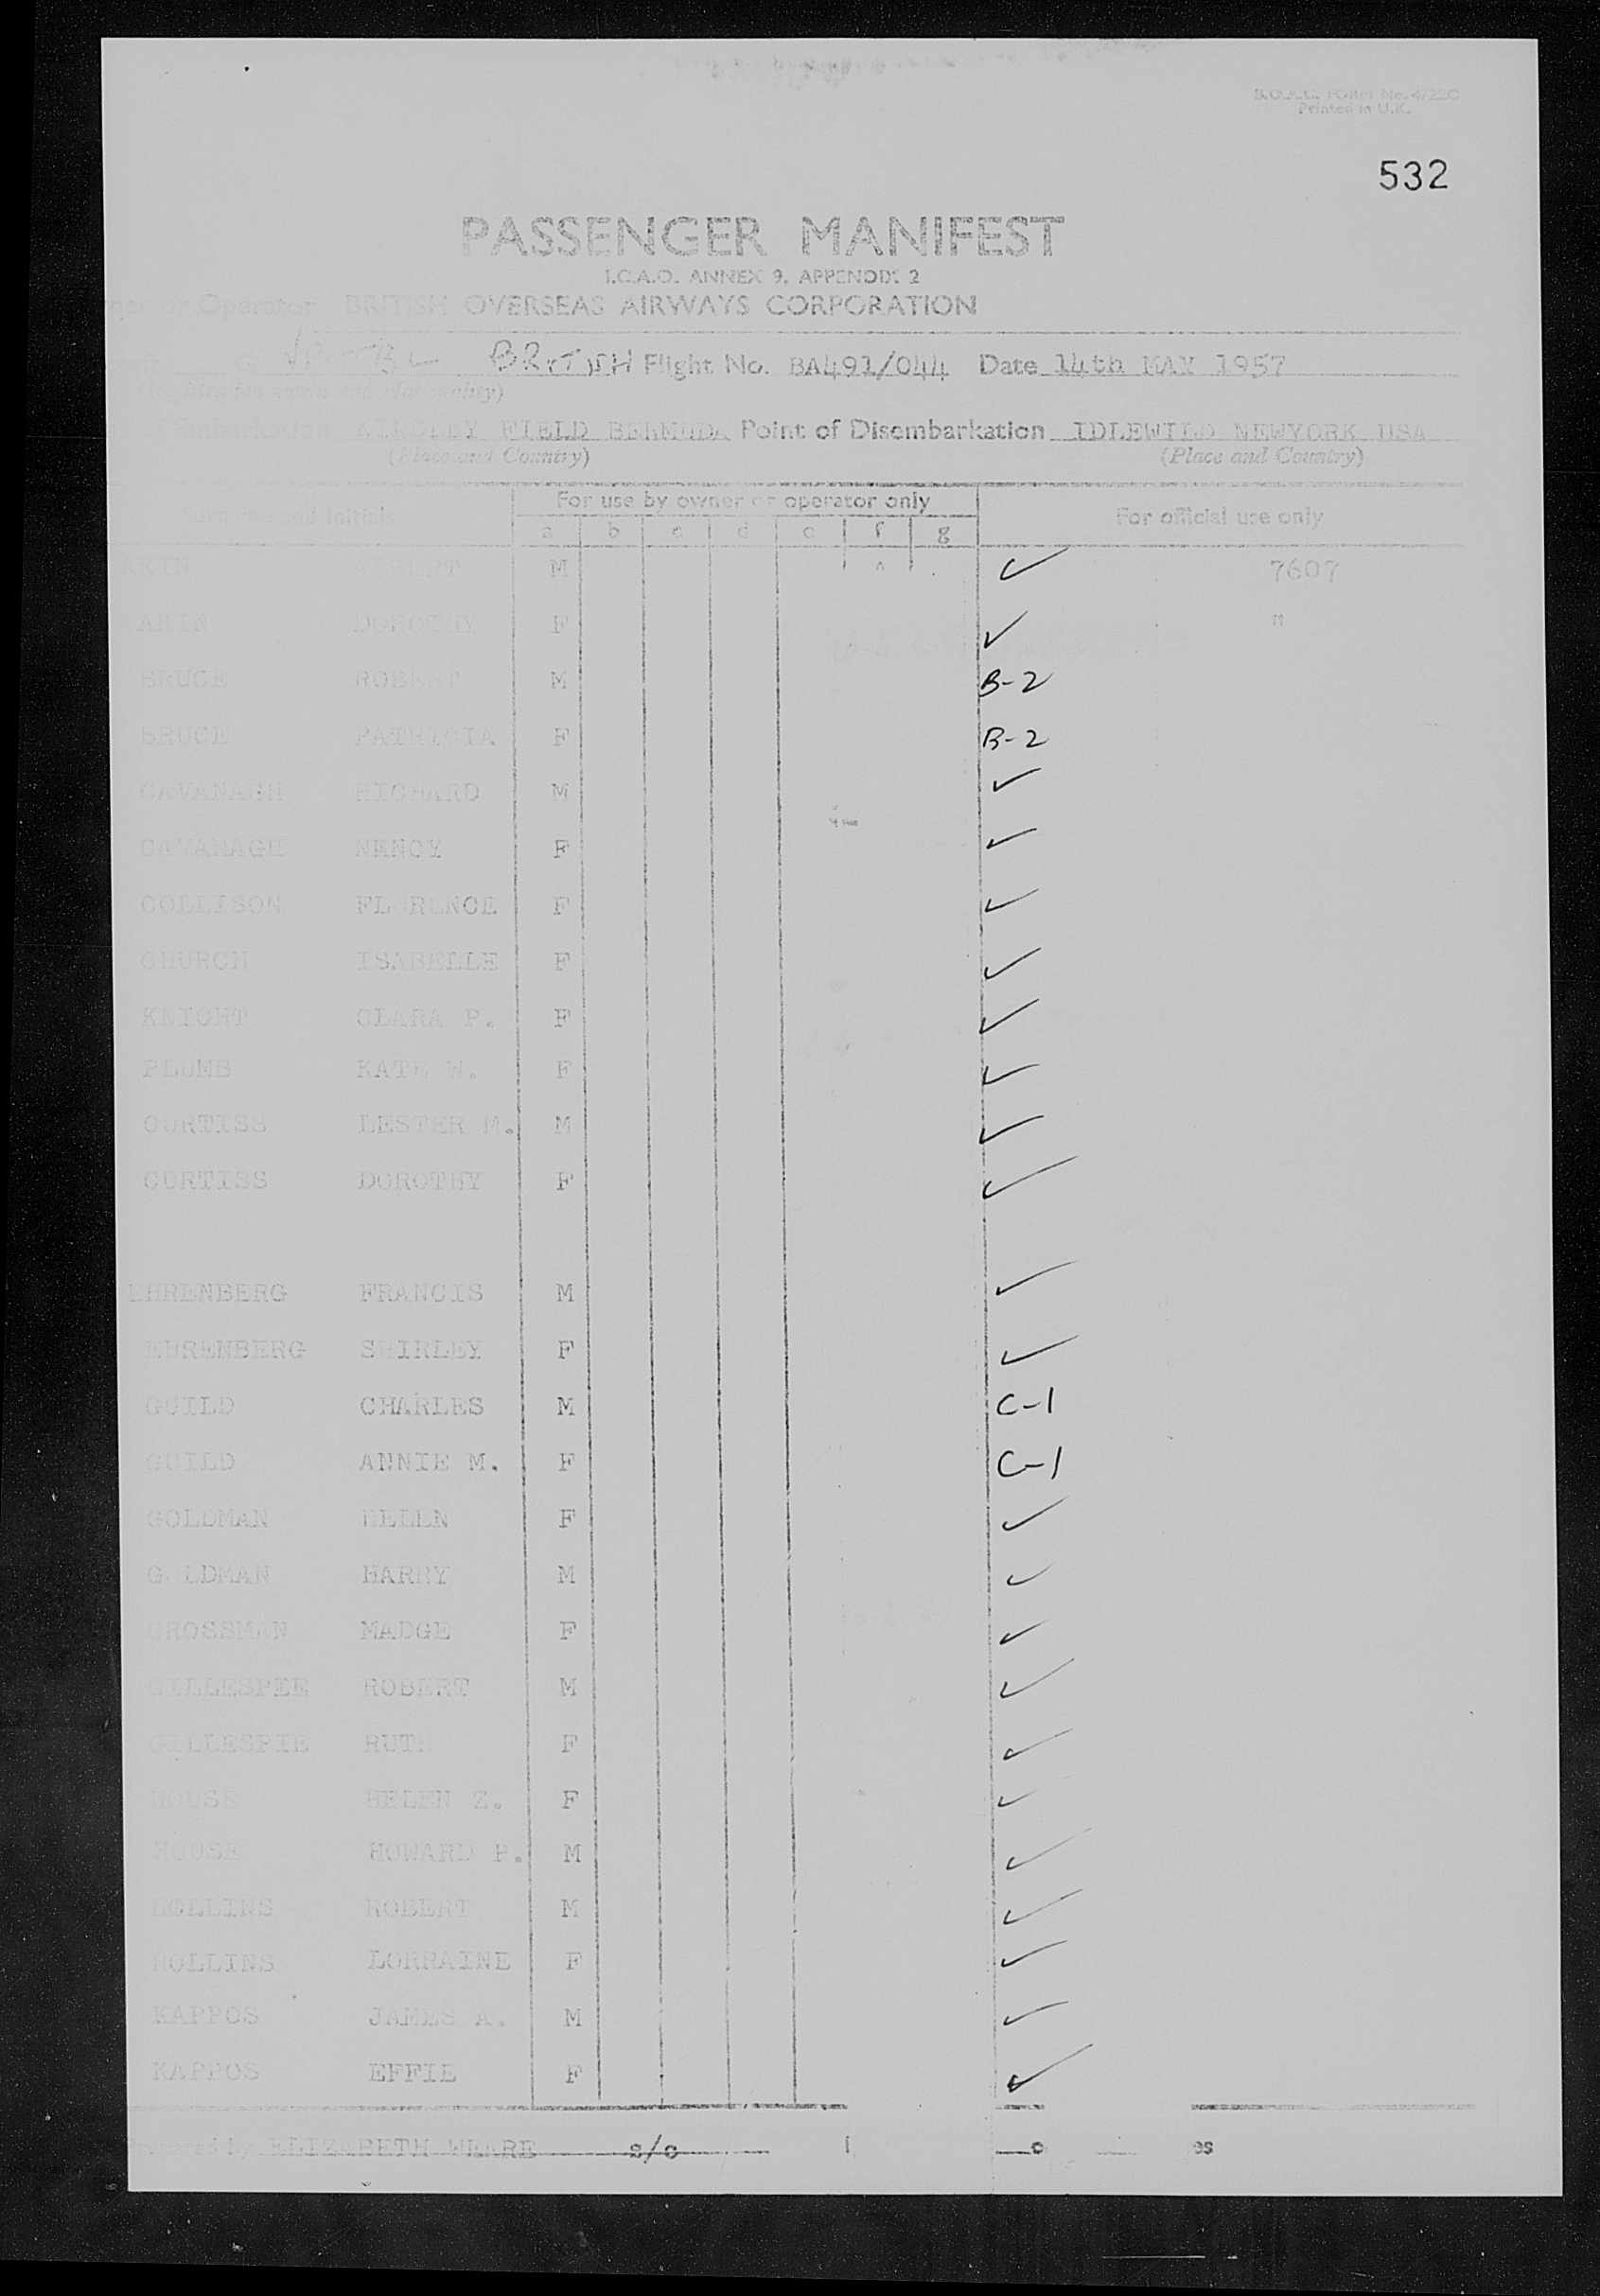 B.O.A.C. Form No.
Printed in U.K.
532
PASSENGER MANIFEST
I.C.A.O. ANNEX 9, APPENDIX 2
or Operator BRITISH OVERSEAS AIRWAYS CORPORATION
G BRITISH Flight No. BA491/044 Date 14th MAY 1957
Embarkation KINDLEY FIELD BERMUDA Point of Disembarkation IDLEWILD NEWYORK USA
(Place and Country) (Place and Country)
Surname and Initials For use by owner or operator only For official use only
a b c d e f g
AKIN M ✓ 7607
AKIN DOROTHY F ✓ "
BRUCE ROBERT M B-2
BRUCE PATRICIA F B-2
CAVANAGH RICHARD M ✓
CAVANAGH NANCY F ✓
COLLISON FLORENCE F ✓
CHURCH ISABELLE F ✓
KNIGHT CLARA P. F ✓
PLUMB KATE W. F ✓
CURTISS LESTER M. M ✓
CURTISS DOROTHY F ✓
EHRENBERG FRANCIS M ✓
EHRENBERG SHIRLEY F ✓
GUILD CHARLES M C-1
GUILD ANNIE M. F C-1
GOLDMAN HELEN F ✓
GOLDMAN HARRY M ✓
GROSSMAN MADGE F ✓
GILLESPIE ROBERT M ✓
GILLESPIE RUTH F ✓
HOUSE HELEN Z. F ✓
HOUSE HOWARD P. M ✓
HOLLINS ROBERT M ✓
HOLLINS LORRAINE F ✓
KAPPOS JAMES A. M ✓
KAPPOS EFFIE F ✓
by ELIZABETH WEARE s/o